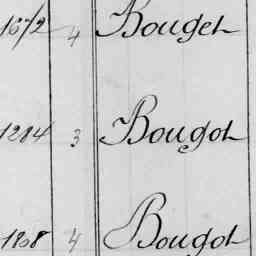 1672 4 Bouget
1284 3 Bougot
1808 4 Bougot